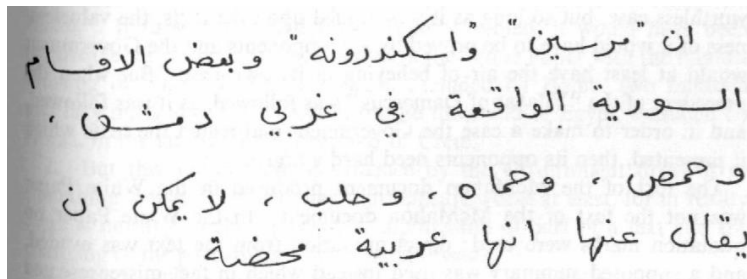 ان "مرسين" "واسكندرونه" وبعض الاقسام
السورية الواقعة في غربي دمشق،
وحمص وحماه وحلب، لا يمكن ان
يقال عنها انها "عربية" محضة